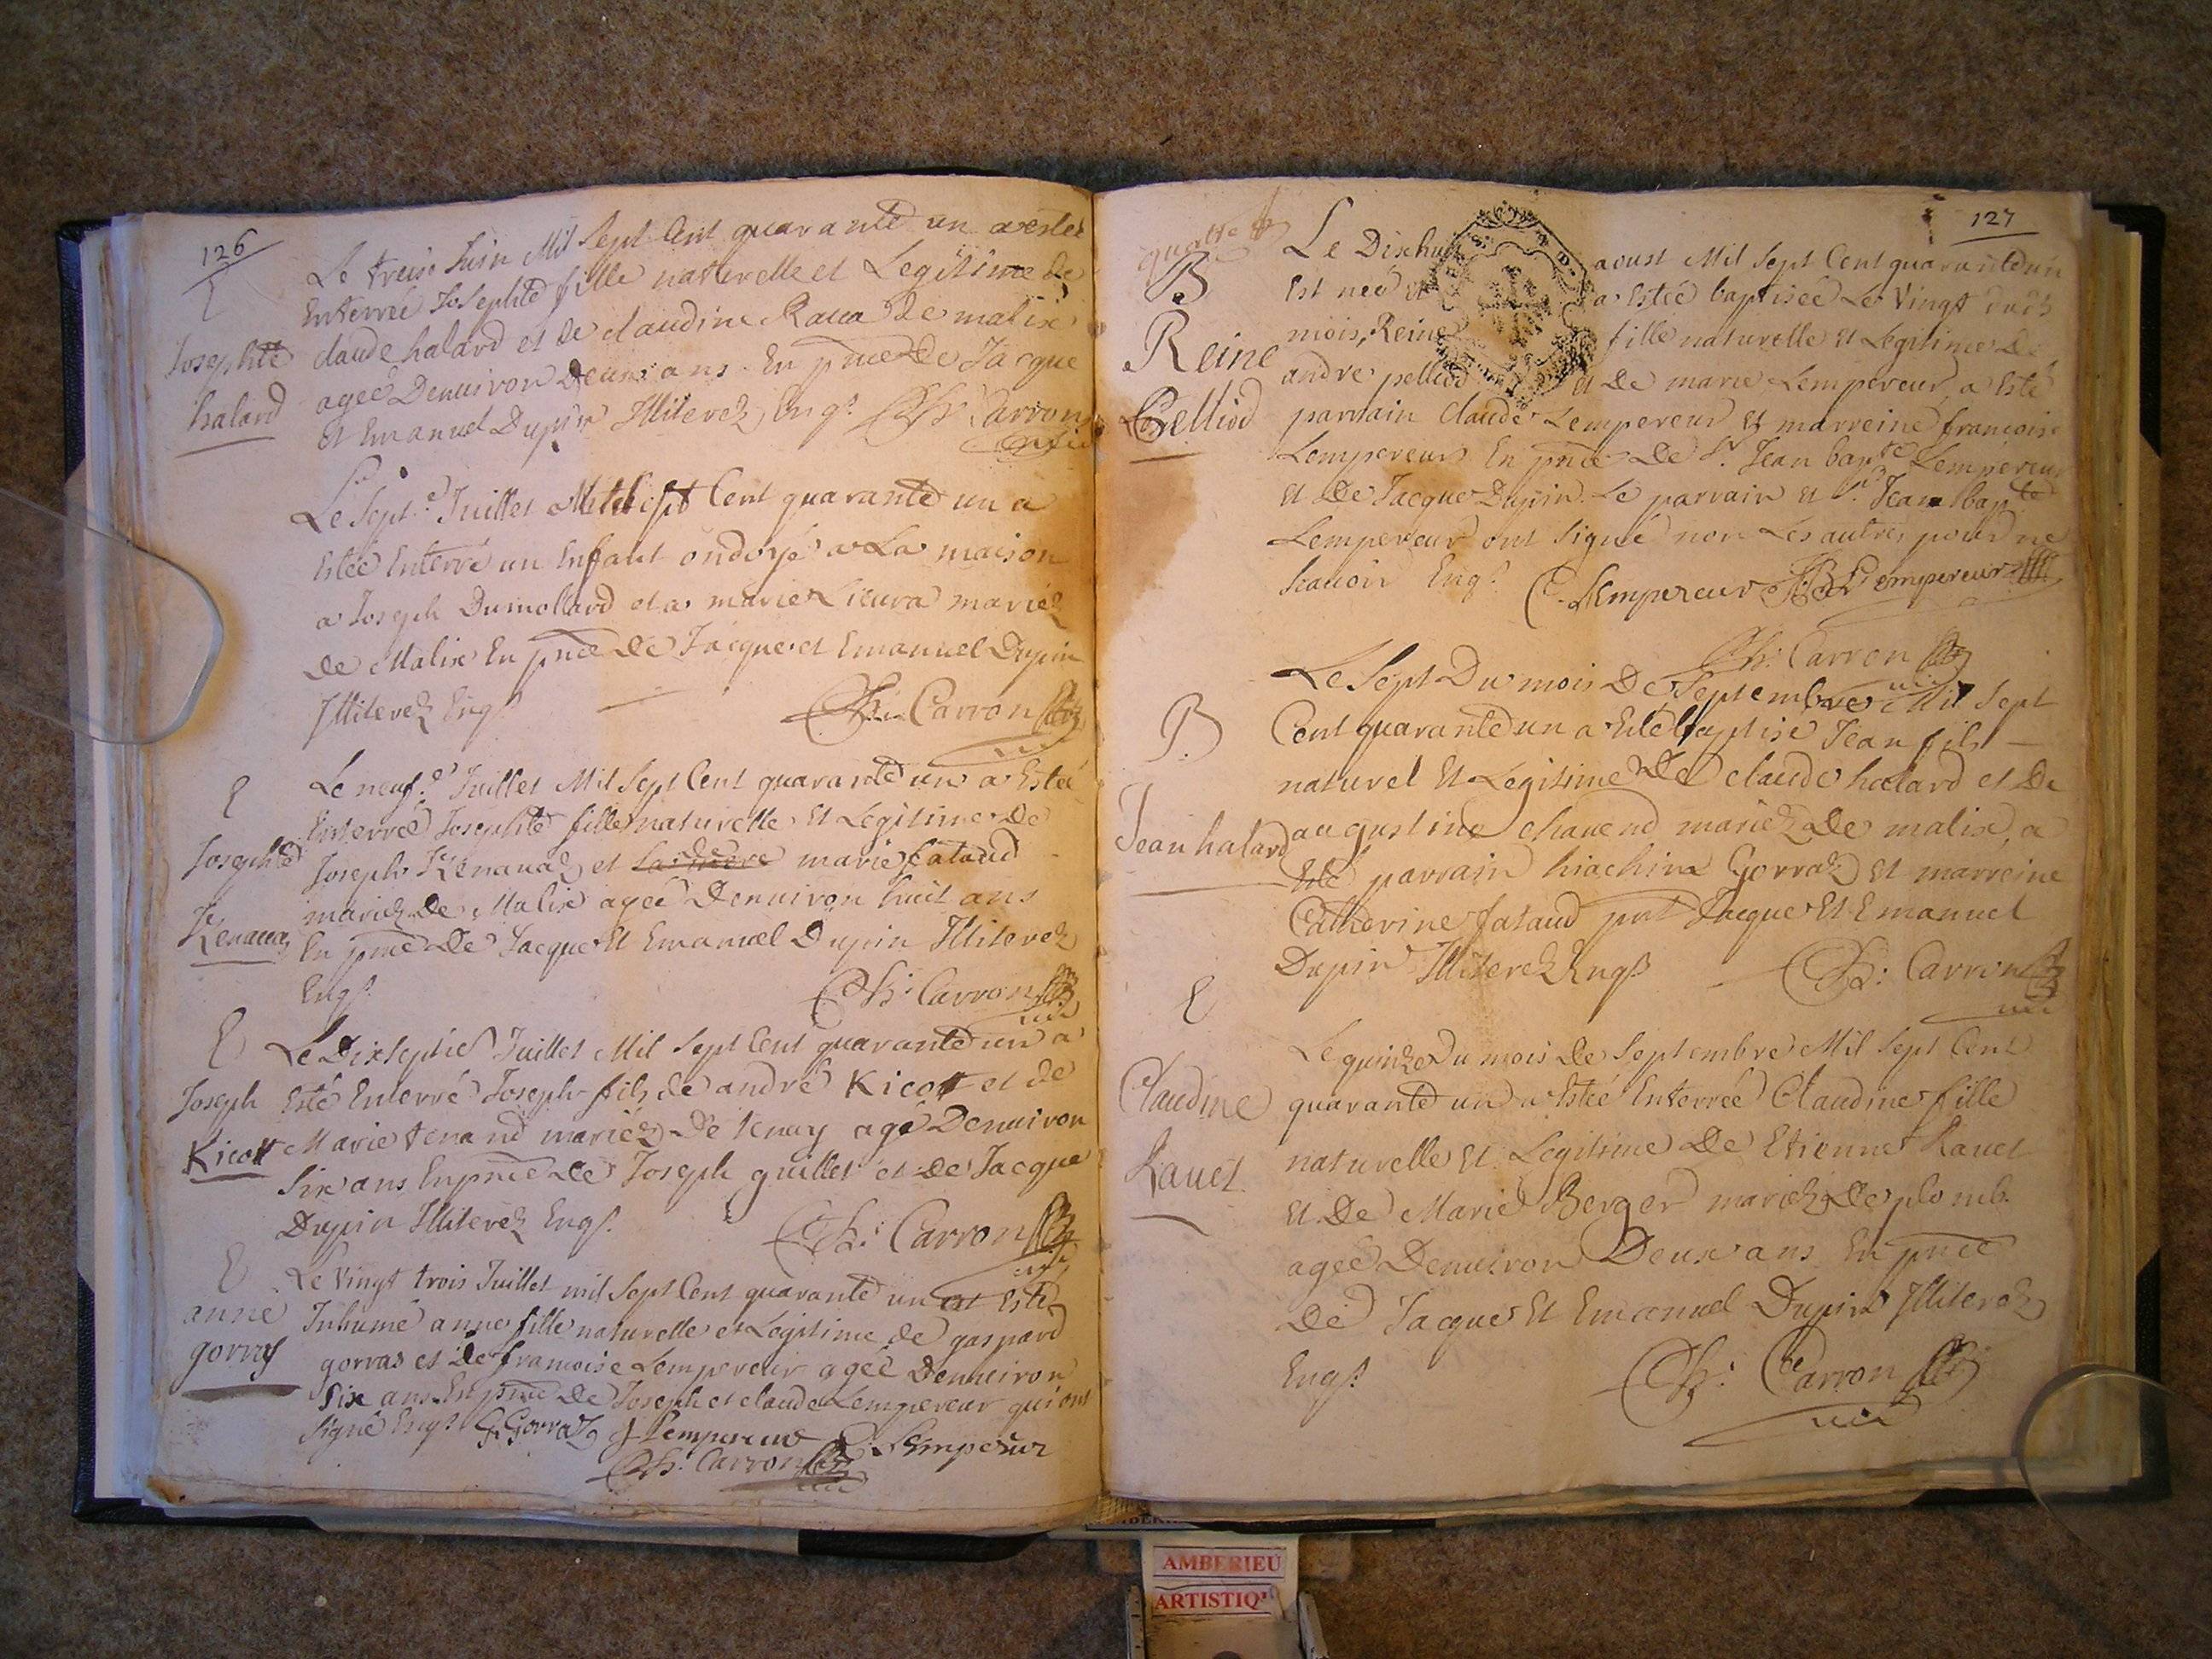 126
E
Josephte
halard
Le treize Juin Mil Sept Cent quarante un a estee
Enterrée Josephte fille naturelle et Legitime de
claude halard et de claudine Raua de malix
agée Denuiron Deux ans En pnce De Jacque
et Emanuel Dupin Illiterez Engt Ch: Carron
curé
Le Sept.e Juillet Mil Sept Cent quarante un a
Estée Enterré un Enfant ondoyé a La maison
a Joseph Dumollard et a marie mariez
de Malix En pnce De Jacque et Emanuel Dupin
Illiterez Engt Ch: Carron
E
Josephte
Renauaz
Le neuf.e Juillet Mil Sept Cent quarante un a Estée
Enterrée Josephte fille naturelle Et Legitime De
Joseph Renauaz et marie fataud
mariez De Malix agée Denuiron huit ans
En pnce De Jacque Et Emanuel Dupin Illiterez
Engt Ch: Carron
E
Joseph
Kicott
Le Dixseptie Juillet Mil Sept Cent quarante un a
Esté Enterré Joseph fils de andré Kicott et de
Marie tenand mariéz De tenay agé Denuiron
Six ans En pnce De Joseph guillet et De Jacque
Dupin Illiterez Engt Ch: Carron
E
anne
gorras
Le Vingt trois Juillet mil Sept Cent quarante un Esté
Inhumé anne fille naturelle et Legitime de gaspard
gorras et De francoise Lempereur agée Denuiron
Six ans En pnce De Joseph et claude Lempereur qui ont
Signé Engt G Gorraz J Lempereur C. Lempereur
Ch: Carron
127
quatre
B
Reine
Pelliod
Le Dixhuit aoust Mil Sept Cent quarante un
Est neé et a Estée baptisée Le Vingt dudt
mois, Reine fille naturelle et Legitime De
andre pelliod et De marie Lempereur a Esté
parrain claude Lempereur Et marreine francoise
Lempereur En pnce De Sr. Jean bapte Lempereur
et De Jacque Dupin Le parrain et Sr Jean Bapte
Lempereur ont signé non Les autres pour ne
scauoir Engt C. Lempereur JB Lempereur
Ch: Carron
B
Jean halard
Le Sept Du mois De Septembre Mil Sept
Cent quarante un a Esté baptisé Jean fils
naturel Et Legitime De claude halard et De
augustine chauend mariéz De malix, a
Esté parrain hiachin Gorraz Et marreine
Catherine fataud pnt Jacque Et Emanuel
Dupin Illiterez Engt Ch: Carron
E
Claudine
Rauet
Le quinze Du mois De Septembre Mil Sept Cent
quarante un a Estéé Enterrée Claudine fille
naturelle et Legitime De Etienne Rauet
et De Marie Berger mariéz De plomb
agée Denuiron Deux ans En pnce
De Jacque Et Emanuel Dupin Illiterez
Engt Ch: Carron
AMBERIEU
ARTISTIQ